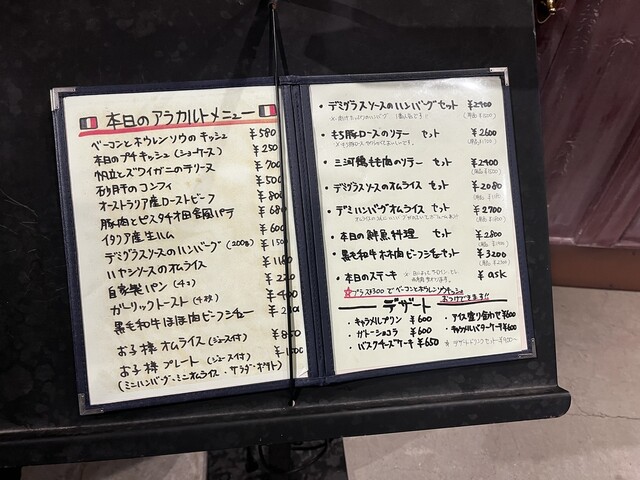 本日のアラカルトメニュー
ベーコンとホウレンソウのキッシュ ¥580
本日のプチキッシュ(ショーケース) ¥250
帆立とズワイガニのテリーヌ ¥700
砂肝のコンフィ ¥500
オーストラリア産ローストビーフ
豚肉とピスタチオ田舎風パテ
イタリア産生ハム ¥600
デミグラスソースのハンバーグ(200g)
ハヤシソースのオムライス
自家製パン(4コ) ¥220
ガーリックトースト(4枚)
黒毛和牛ほほ肉ビーフシチュー
お子様オムライス(ジュース付)
お子様プレート(ジュース付)
(ミニハンバーグ・ミニオムライス・サラダ・ポテト)
・デミグラスソースのハンバーグセット ¥2400
・もち豚ロースのソテー セット ¥2600
・三河鴨もも肉のソテー セット ¥2400
・デミグラスソースのオムライス セット ¥2080
・デミハンバーグオムライス セット ¥2700
・本日の鮮魚料理 セット ¥2800
・黒毛和牛ホホ肉ビーフシチューセット ¥3200
・本日のステーキ ¥ask
☆プラス¥300でベーコンとホウレンソウキッシュ
おつけできます!!
デザート
・キャラメルプリン ¥600
・ガトーショコラ ¥600
・バスクチーズケーキ ¥650
・アイス盛り合わせ ¥600
・キャラメルバターケーキ ¥600